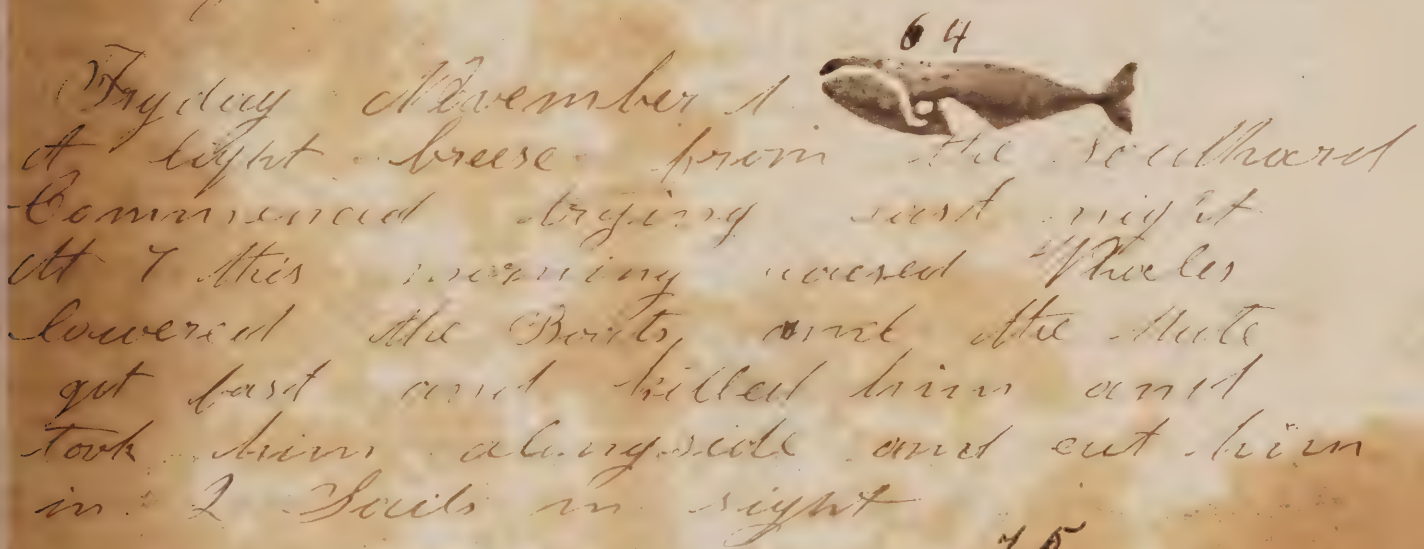 64
Fryday November 1
A light breese from the southard
Commenced trying last night
At 7 this morning raised Whales
lowered the Boats and the Mate
got fast and killed him and
took him alongside and cut him
in 2 Sails in sight
75